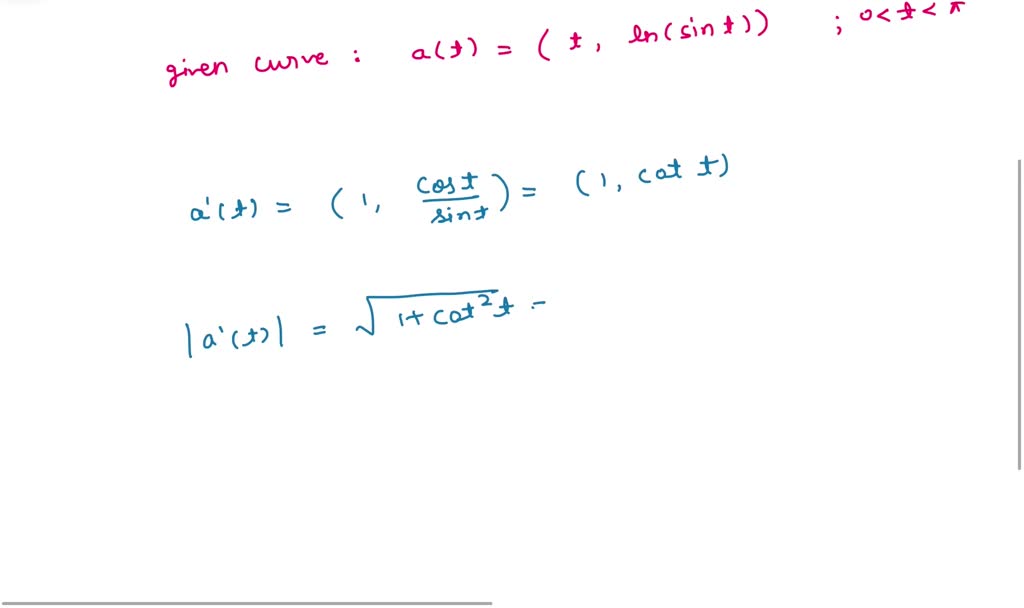 given curve : a(t) = (t, ln(sint)) ; 0<t<π
a'(t) = (1, cost/sint) = (1, cot t)
|a'(t)| = √(1+cot²t) =